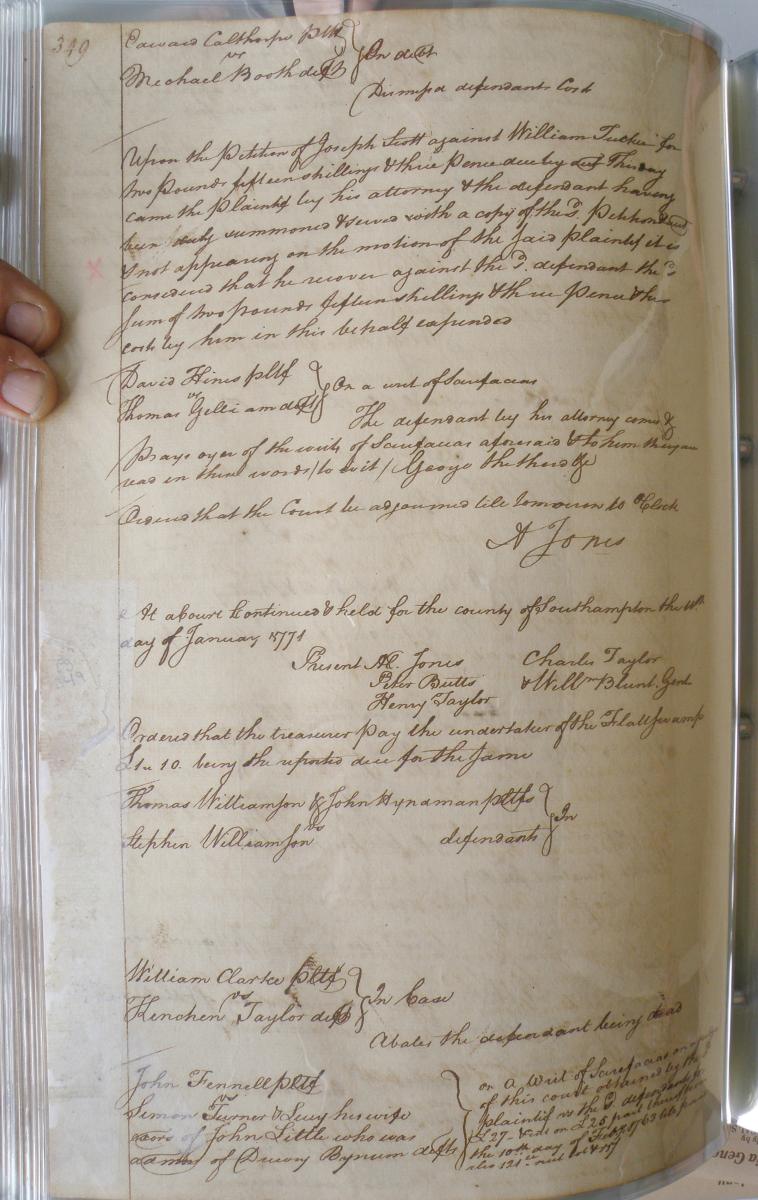 349
Edward Calthorpe pltf
vs } In debt
Michael Booth deft
Dismiss'd defendants Cost
Upon the Petition of Joseph Scott against William Tucker for
two Pounds fifteen shillings & three Pence due by This day
came the Plaintif by his attorney & the defendant having
been duly summoned & served with a copy of the sd. Petition
& not appearing on the motion of the said Plaintif it is
considered that he recover against the sd. defendant the sd
sum of two pounds fifteen shillings & three Pence & his
costs by him in this behalf expended
David Hines pltf
vs } On a writ of Scirefacias
Thomas deft
The defendant by his attorney comes &
Prays oyer of the writ of Scirefacias aforesaid & to him they are
read in these words (to wit) George the third &c
Ordered that the Court be adjourned till tomorrow 10 oClock
A Jones
At a Court Continued & held for the county of Southampton the
day of January 1771
Present Al. Jones Charles Taylor
Peter Butts & Willm Blunt. Gent
Henry Taylor
Ordered that the treasurer Pay the undertaker of the Flatt swamp
£1 10. being the reported due for the same
Thomas Williamson & John Hyndman pltfs
vs } In
Stephen Williamson defendants
William Clarke pltf
vs } In Case
Henchen Taylor deft
Abates the defendant being dead
John Fennell pltf
vs
Simon Turner & Lucy his wife
exors of John Little who was
admor of Drewry Bynum defts
on a Writ of Scirefacias on a
of this court obtained by the
plaintif vs the sd defendants for
£27
the 10th day of Febr 1763